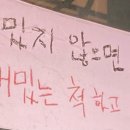 믿지 않으면
재밌는 척 하고